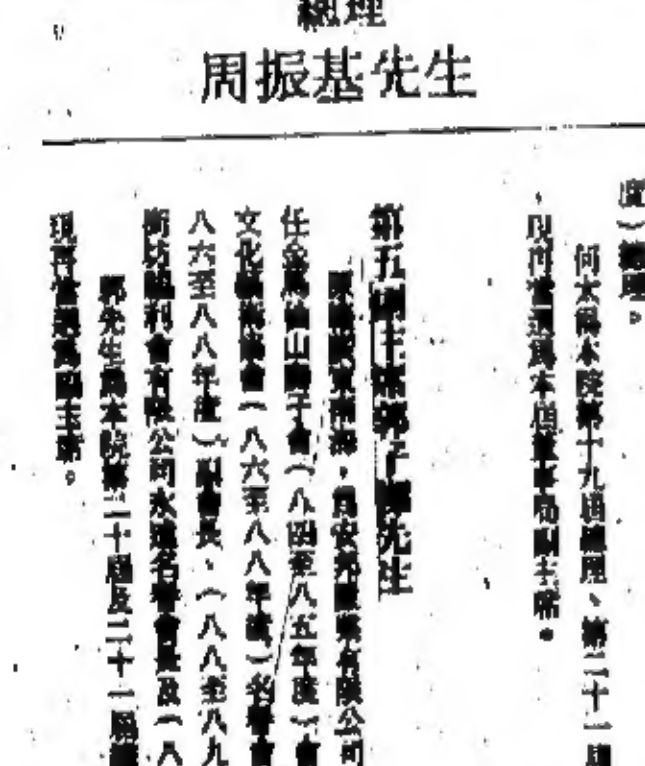 總理
周振基先生
度）總理。
何太為本院第十九屆總理、第二十一屆
，現再當選為本屆董事局副主席。
第五副主席郭 先生
東南 ，為安 有限公司
任金 山獅子會（八四至八五年度）會
文化 協會（八六至八八年度）名譽會
八六至八八年度）副會長，（八八至八九
街坊福利會有限公司永遠名譽會長及（八
郭先生為本院第二十屆及二十一屆總
現再當選為副主席。